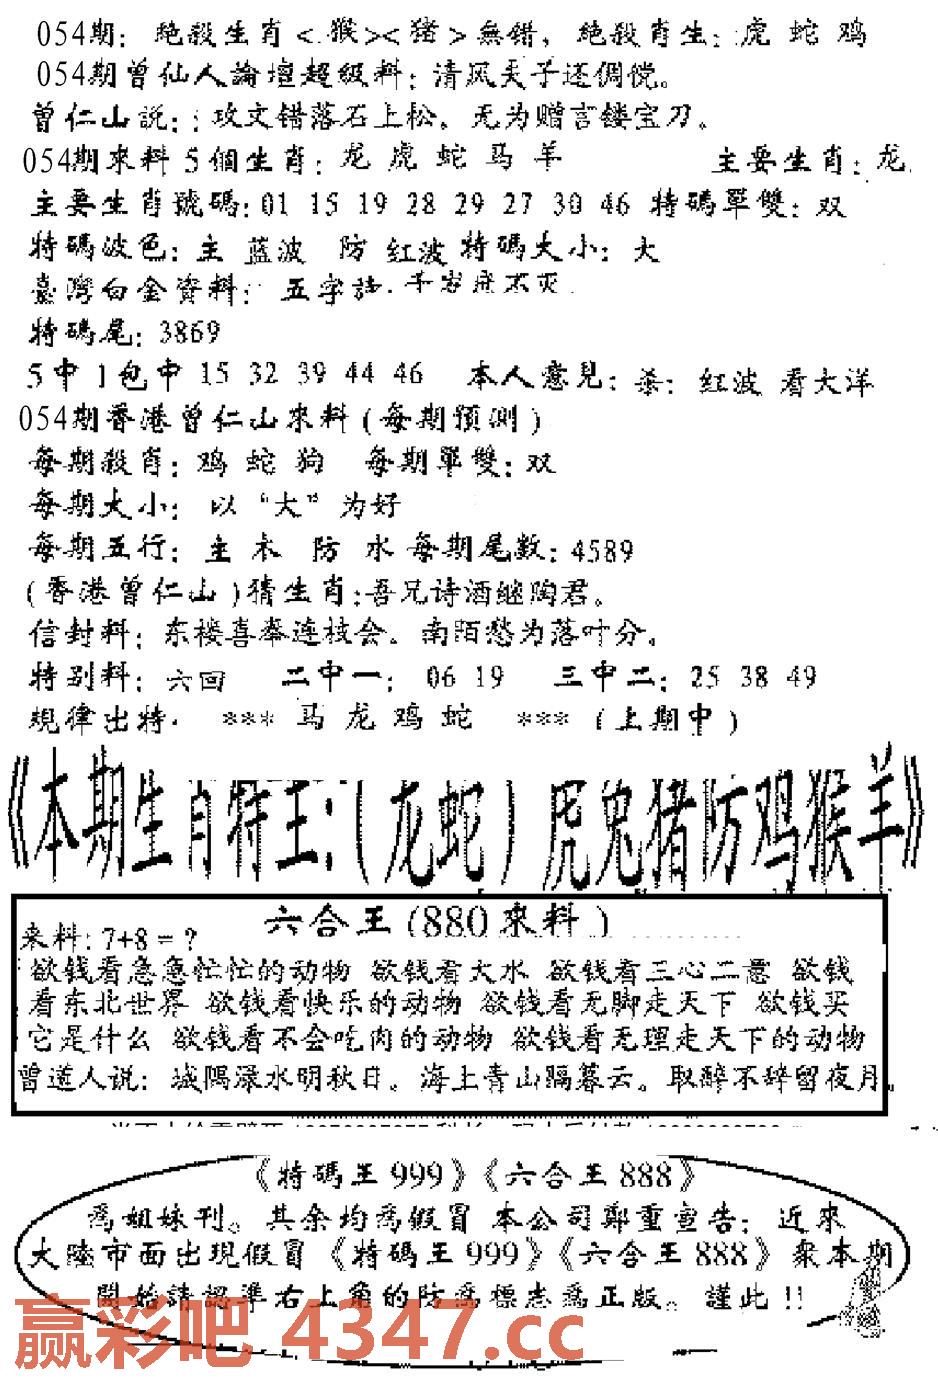 054期：絕殺生肖<猴><猪>無錯，絕殺肖生：虎 蛇 鸡
054期曾仙人論壇超級料：清风天子还倜傥。
曾仁山説：攻文错落石上松。无为赠言镂宝刀。
054期來料 5個生肖：龙 虎 蛇 马 羊 主要生肖：龙
主要生肖號碼：01 15 19 28 29 27 30 46 特碼單雙：双
特碼波色：主 蓝波 防 红波 特碼大小：大
臺灣白金資料： 五字詩：千岁 不灭
特碼尾：3869
5中1包中 15 32 39 44 46 本人意見：杀：红波 看大洋
054期香港曾仁山來料（每期預測）
每期殺肖：鸡 蛇 狗 每期單雙：双
每期大小：以“大”为好
每期五行：主 木 防 水 每期尾数：4589
(香港曾仁山)猜生肖：吾兄诗酒继陶君。
信封料：东楼喜奉连枝会。南陌愁为落叶分。
特别料：六回 二中一：06 19 三中二：25 38 49
規律出特． *** 马 龙 鸡 蛇 *** （上期中）
《本期生肖特王：（龙蛇）虎兔猪防鸡猴羊》
六合王(880來料)
来料：7+8=?
欲钱看急急忙忙的动物 欲钱看大水 欲钱看三心二意 欲钱
看东北世界 欲钱看快乐的动物 欲钱看无脚走天下 欲钱买
它是什么 欲钱看不会吃肉的动物 欲钱看无理走天下的动物
曾道人说：城隅渌水明秋日。海上青山隔暮云。取醉不辞留夜月。
《特碼王999》《六合王888》
爲姐妹刊。其余均爲假冒 本公司鄭重宣告：近來
大陸市面出現假冒《特碼王999》《六合王888》衆本期
開始請認準右上角的防爲標志爲正版。謹此!!
赢彩吧 4347.cc